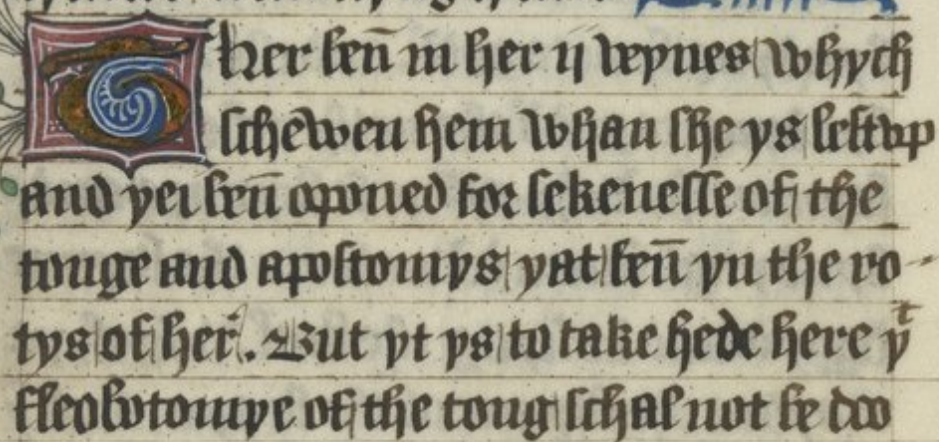 Ther ben̄ in her ij veynes whych
schewen hem whan she ys lift vp
and yei ben̄ opened for sekenesse of the
tonge and apostomys yat ben̄ yn the ro-
tys of her. But yt ys to take hede here yͭ
fleobotomye of the tong schal not be doo